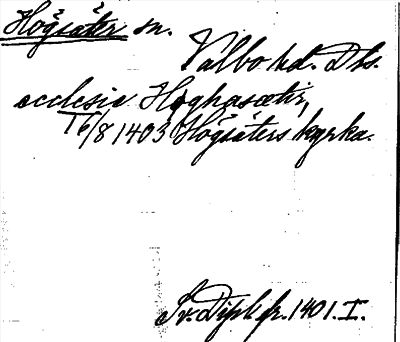 Högsäter sn.
Valbo hd. Dls.
ecclesie Høghasætir,
16/8 1403 Högsäters kyrka.
Sv. Dipl. fr. 1401. I.